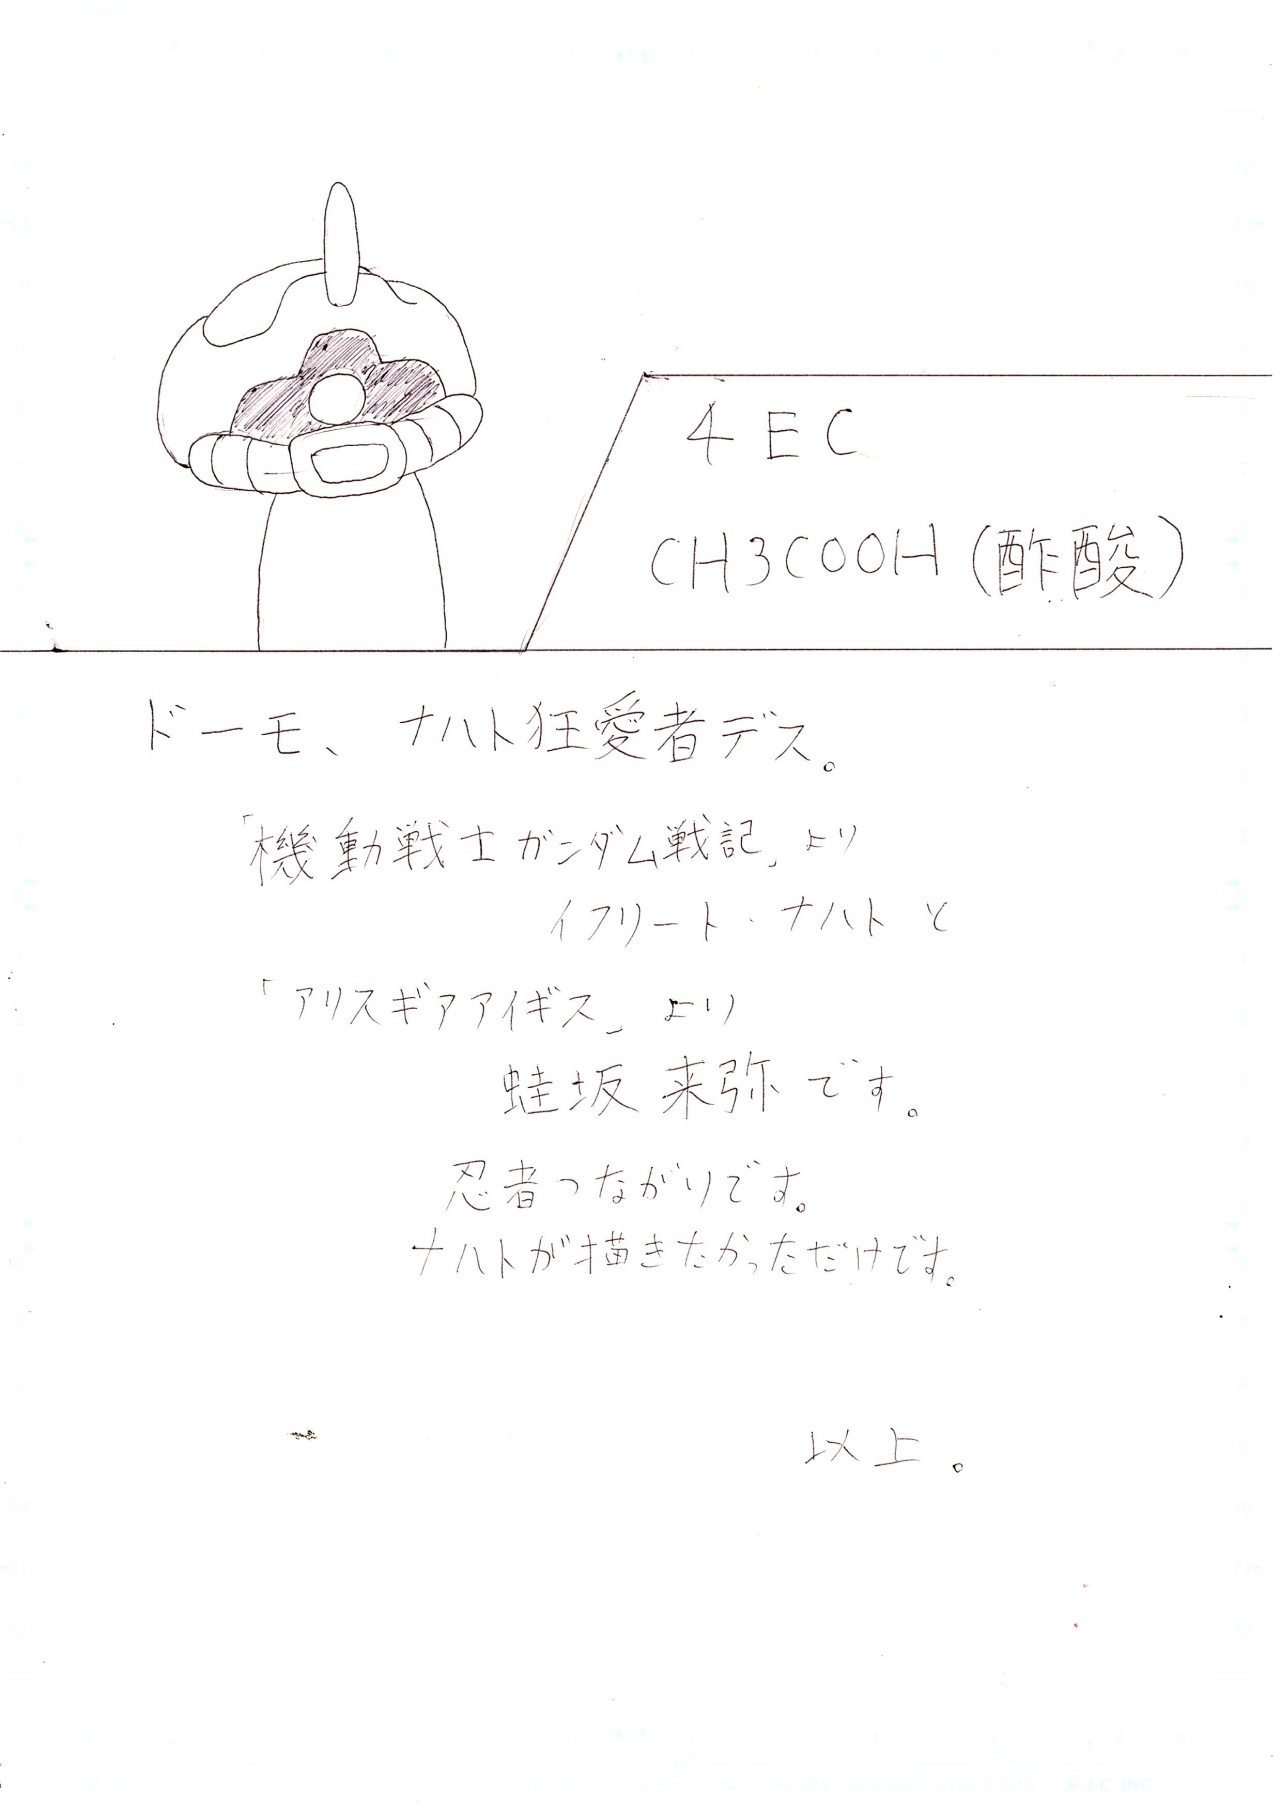 4EC
CH3COOH(酢酸)
ドーモ、ナハト狂愛者デス。
「機動戦士ガンダム戦記」より
イフリート・ナハトと
「アリスギアアイギス」より
蛙坂 来弥です。
忍者つながりです。
ナハトが描きたかっただけです。
以上。